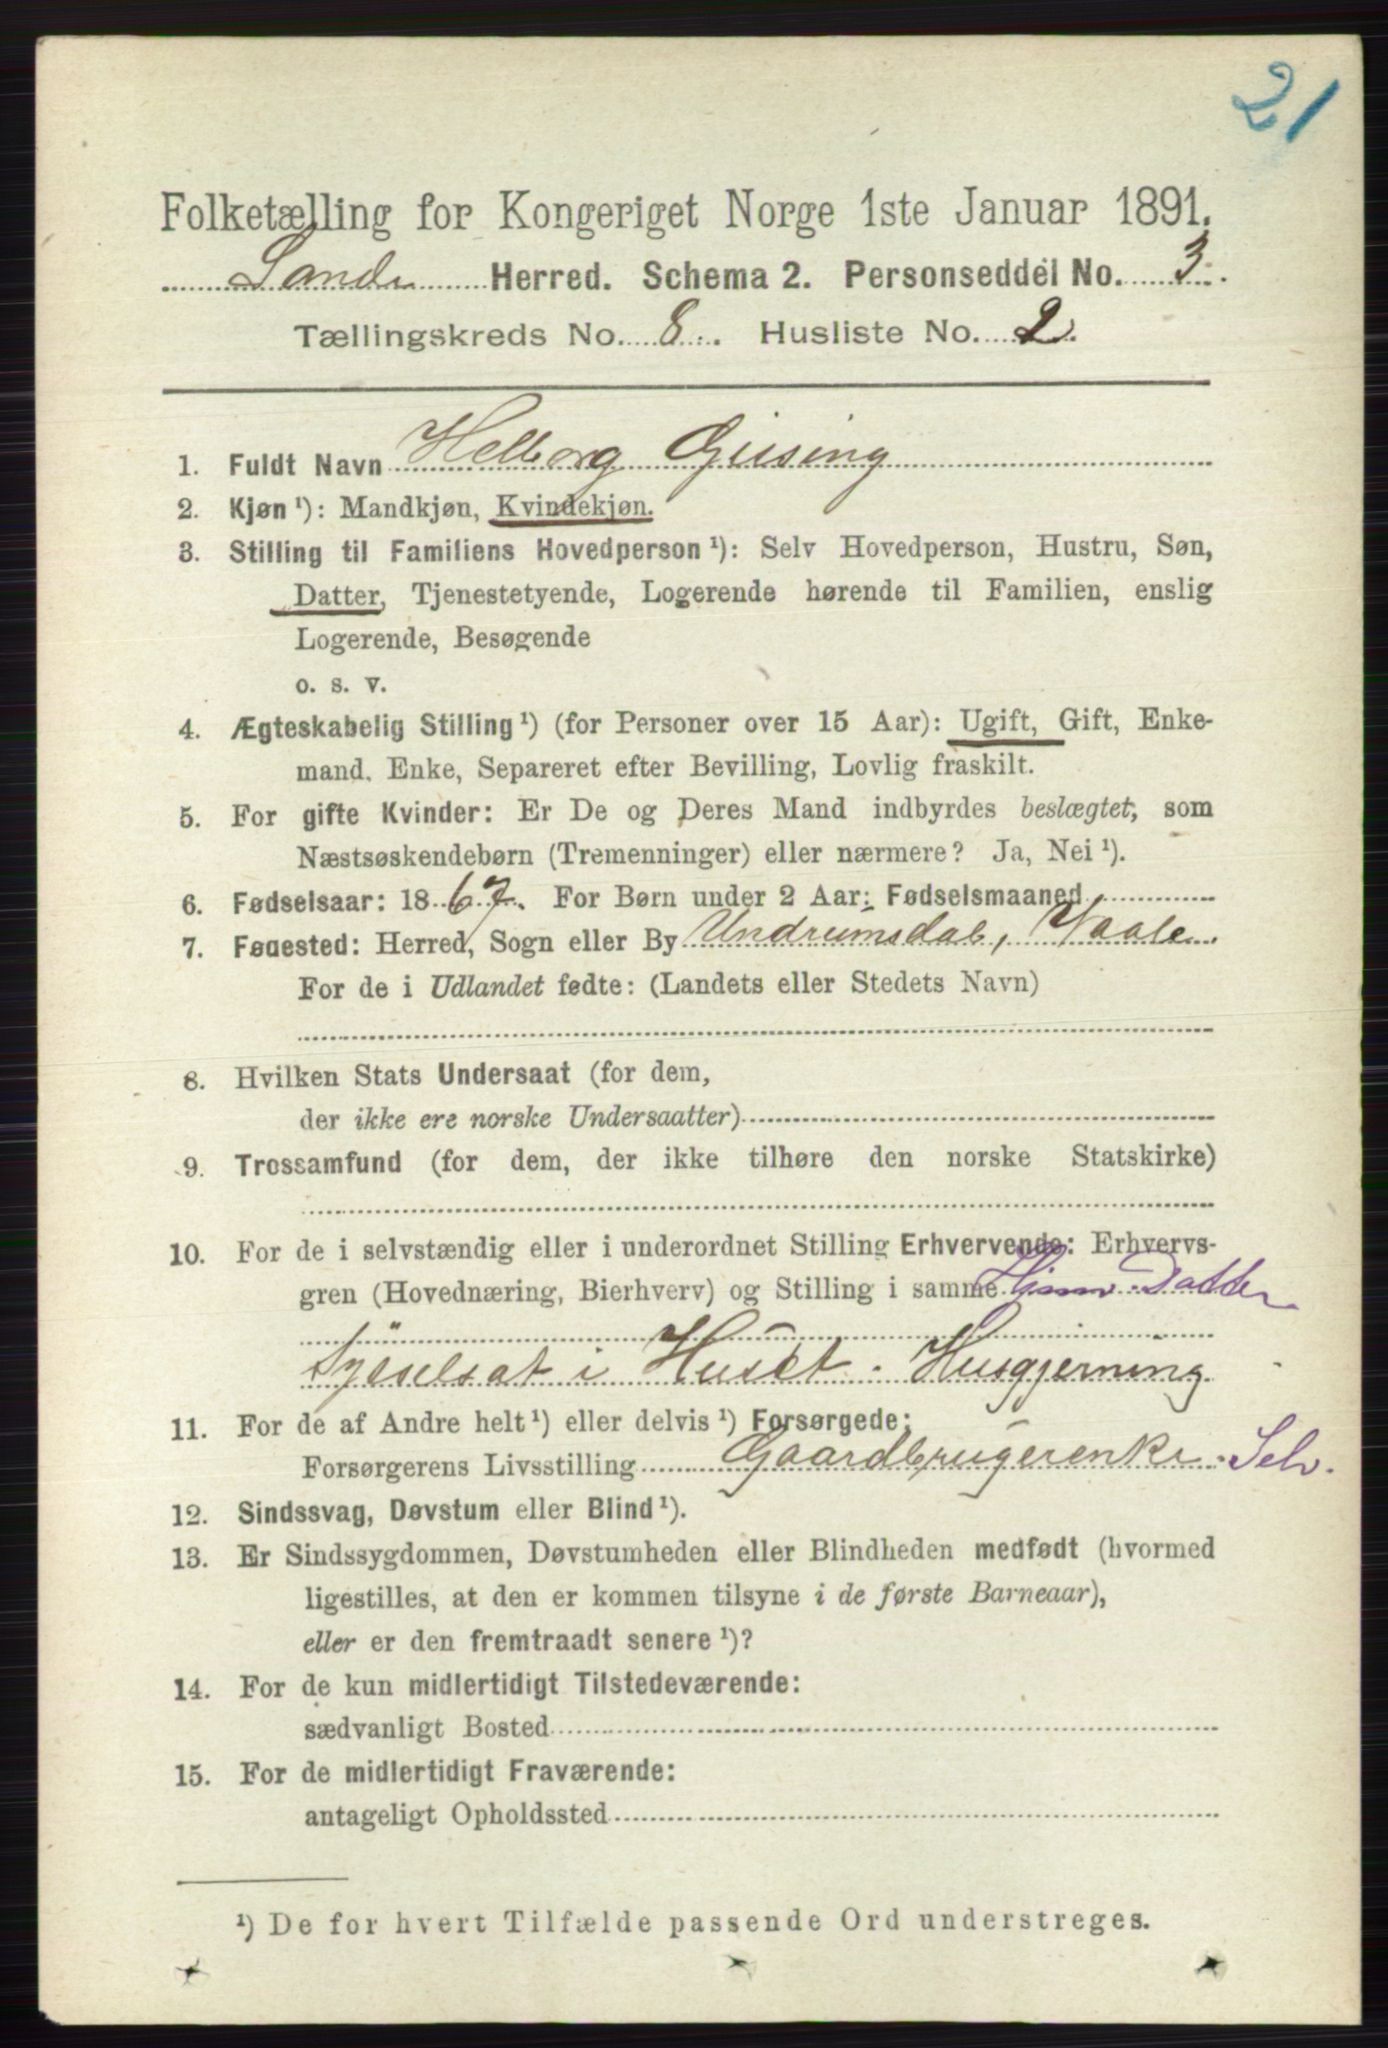 21
Folketælling for Kongeriget Norge 1ste Januar 1891.
Sande Herred. Schema 2. Personseddel No. 3.
Tællingskreds No. 8. Husliste No. 2.
1. Fuldt Navn Helborg Giising
2. Kjøn ¹): Mandkjøn, Kvindekjøn.
3. Stilling til Familiens Hovedperson ¹): Selv Hovedperson, Hustru, Søn,
Datter, Tjenestetyende, Logerende hørende til Familien, enslig
Logerende, Besøgende
o. s. v.
4. Ægteskabelig Stilling ¹) (for Personer over 15 Aar): Ugift, Gift, Enke-
mand, Enke, Separeret efter Bevilling, Lovlig fraskilt.
5. For gifte Kvinder: Er De og Deres Mand indbyrdes beslægtet, som
Næstsøskendebørn (Tremenninger) eller nærmere? Ja, Nei ¹).
6. Fødselsaar: 1867. For Børn under 2 Aar: Fødselsmaaned
7. Fødested: Herred, Sogn eller By Undrumsdal, Vaale.
For de i Udlandet fødte: (Landets eller Stedets Navn)
8. Hvilken Stats Undersaat (for dem,
der ikke ere norske Undersaatter)
9. Trossamfund (for dem, der ikke tilhøre den norske Statskirke)
10. For de i selvstændig eller i underordnet Stilling Erhvervende: Erhvervs-
gren (Hovednæring, Bierhverv) og Stilling i samme Datter
sysselsat i Huset. Husgjerning
11. For de af Andre helt ¹) eller delvis ¹) Forsørgede:
Forsørgerens Livsstilling Gaardbrugerenke. Selv.
12. Sindssvag, Døvstum eller Blind ¹).
13. Er Sindssygdommen, Døvstumheden eller Blindheden medfødt (hvormed
ligestilles, at den er kommen tilsyne i de første Barneaar),
eller er den fremtraadt senere ¹)?
14. For de kun midlertidigt Tilstedeværende:
sædvanligt Bosted
15. For de midlertidigt Fraværende:
antageligt Opholdssted
¹) De for hvert Tilfælde passende Ord understreges.